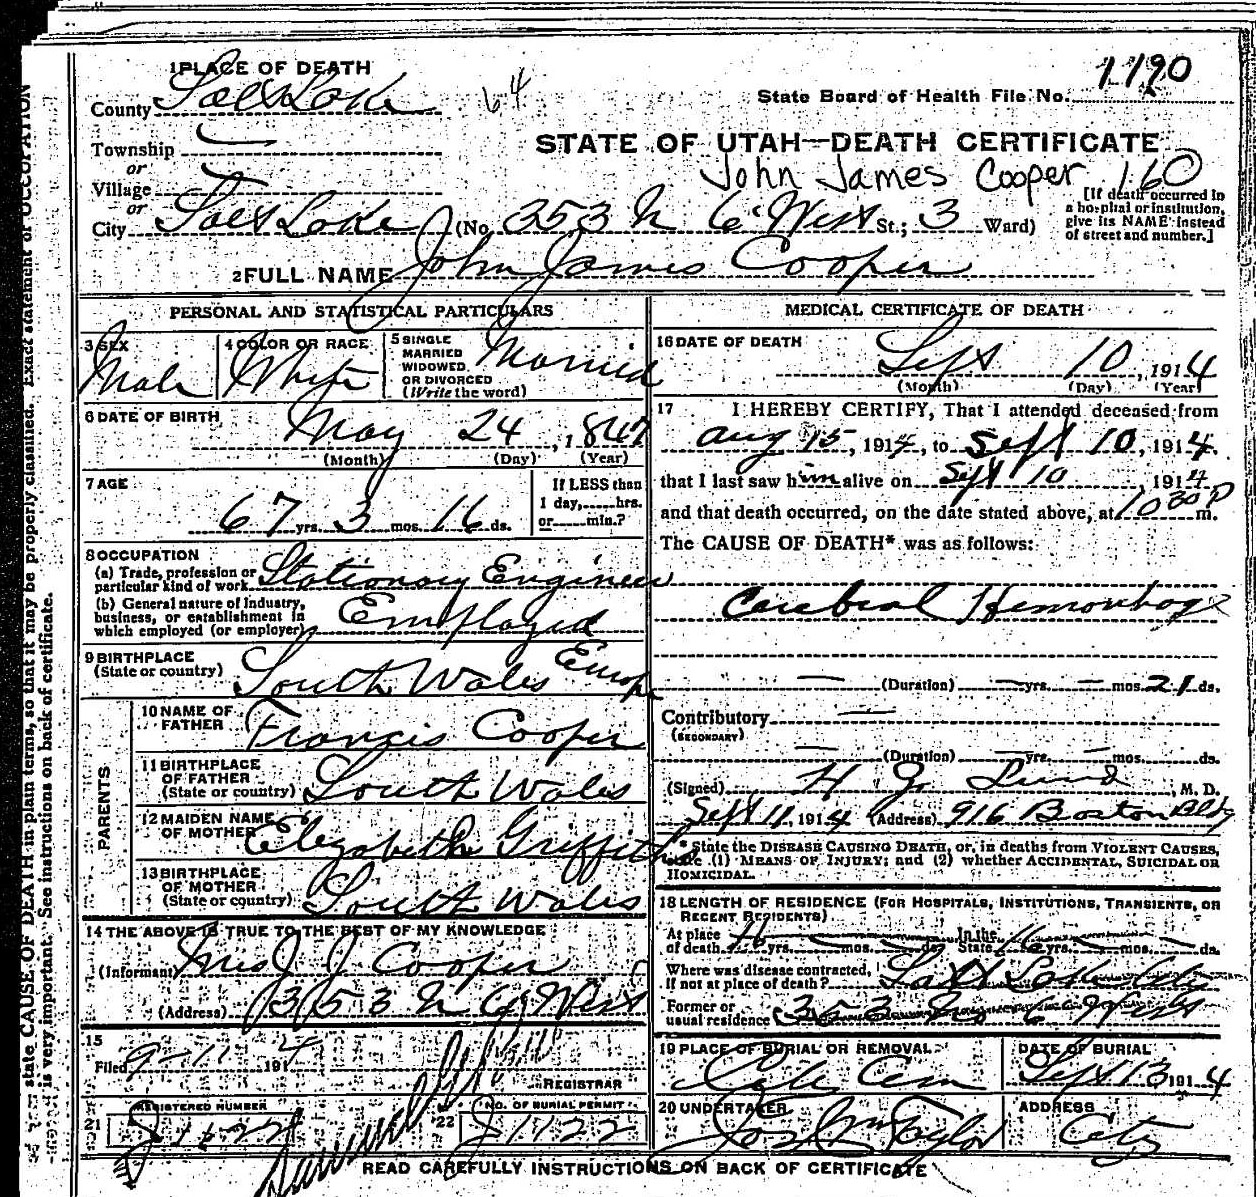 1 PLACE OF DEATH
County Salt Lake
64
State Board of Health File No. 1190
Township
or
Village
or
STATE OF UTAH—DEATH CERTIFICATE
John James Cooper 160
City Salt Lake (No. 353 N 6 West St.; 3 Ward)
[If death occurred in a hospital or institution, give its NAME instead of street and number.]
2 FULL NAME John James Cooper
PERSONAL AND STATISTICAL PARTICULARS
3 SEX Male
4 COLOR OR RACE White
5 SINGLE MARRIED WIDOWED OR DIVORCED (Write the word) Married
6 DATE OF BIRTH May 24, 1847
(Month) (Day) (Year)
7 AGE 67 yrs. 3 mos. 16 ds.
If LESS than 1 day, hrs. or min.?
8 OCCUPATION
(a) Trade, profession or particular kind of work Stationary Engineer
(b) General nature of industry, business, or establishment in which employed (or employer) Employed
9 BIRTHPLACE (State or country) South Wales Europe
PARENTS
10 NAME OF FATHER Francis Cooper
11 BIRTHPLACE OF FATHER (State or country) South Wales
12 MAIDEN NAME OF MOTHER Elizabeth Griffiths
13 BIRTHPLACE OF MOTHER (State or country) South Wales
14 THE ABOVE IS TRUE TO THE BEST OF MY KNOWLEDGE
(Informant) Mrs J J Cooper
(Address) 353 N 6 West
15
Filed 9-11 1914
REGISTRAR
REGISTERED NUMBER
21
22 NO. OF BURIAL PERMIT J 1122
MEDICAL CERTIFICATE OF DEATH
16 DATE OF DEATH
Sept 10, 1914
(Month) (Day) (Year)
17 I HEREBY CERTIFY, That I attended deceased from
Aug 15, 1914, to Sept 10, 1914.
that I last saw him alive on Sept 10, 1914
and that death occurred, on the date stated above, at 10 30 P m.
The CAUSE OF DEATH* was as follows:
Cerebral Hemorrhage
(Duration) — yrs. — mos. 21 ds.
Contributory —
(SECONDARY)
(Duration) — yrs. — mos. ds.
(Signed) H. J. Lund, M. D.
Sept 11, 1914 (Address) 916 Boston Bldg
* State the DISEASE CAUSING DEATH, or, in deaths from VIOLENT CAUSES,
state (1) MEANS OF INJURY; and (2) whether ACCIDENTAL, SUICIDAL OR
HOMICIDAL.
18 LENGTH OF RESIDENCE (FOR HOSPITALS, INSTITUTIONS, TRANSIENTS, OR
RECENT RESIDENTS)
At place of death yrs. — mos. — ds. In the State 16 yrs. — mos. — ds.
Where was disease contracted, If not at place of death? Salt Lake City
Former or usual residence 353 No 6 West
19 PLACE OF BURIAL OR REMOVAL City Cem
DATE OF BURIAL Sept 13 1914
20 UNDERTAKER Jos Wm Taylor
ADDRESS City
READ CAREFULLY INSTRUCTIONS ON BACK OF CERTIFICATE
state CAUSE OF DEATH in plain terms, so that it may be properly classified. Exact statement of OCCUPATION
is very important. See instructions on back of certificate.